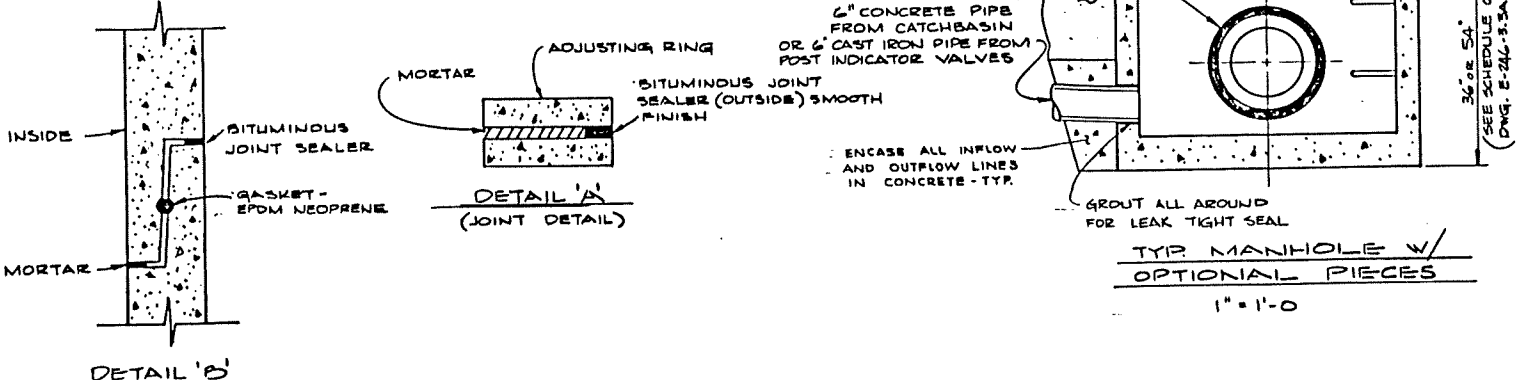 INSIDE
MORTAR
BITUMINOUS
JOINT SEALER
GASKET-
EPDM NEOPRENE
DETAIL 'B'
MORTAR
ADJUSTING RING
BITUMINOUS JOINT
SEALER (OUTSIDE) SMOOTH
FINISH
DETAIL 'A'
(JOINT DETAIL)
6" CONCRETE PIPE
FROM CATCHBASIN
OR 6" CAST IRON PIPE FROM
POST INDICATOR VALVES
ENCASE ALL INFLOW
AND OUTFLOW LINES
IN CONCRETE-TYP.
GROUT ALL AROUND
FOR LEAK TIGHT SEAL
TYP. MANHOLE W/
OPTIONAL PIECES
1" = 1'-0
36" OR 54"
(SEE SCHEDULE
DWG.